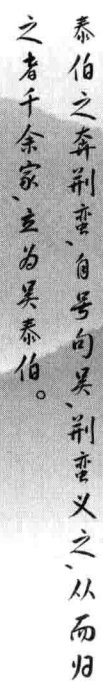 泰伯之奔荆蛮、自号句吴、荆蛮义之、从而归
之者千余家、立为吴泰伯。